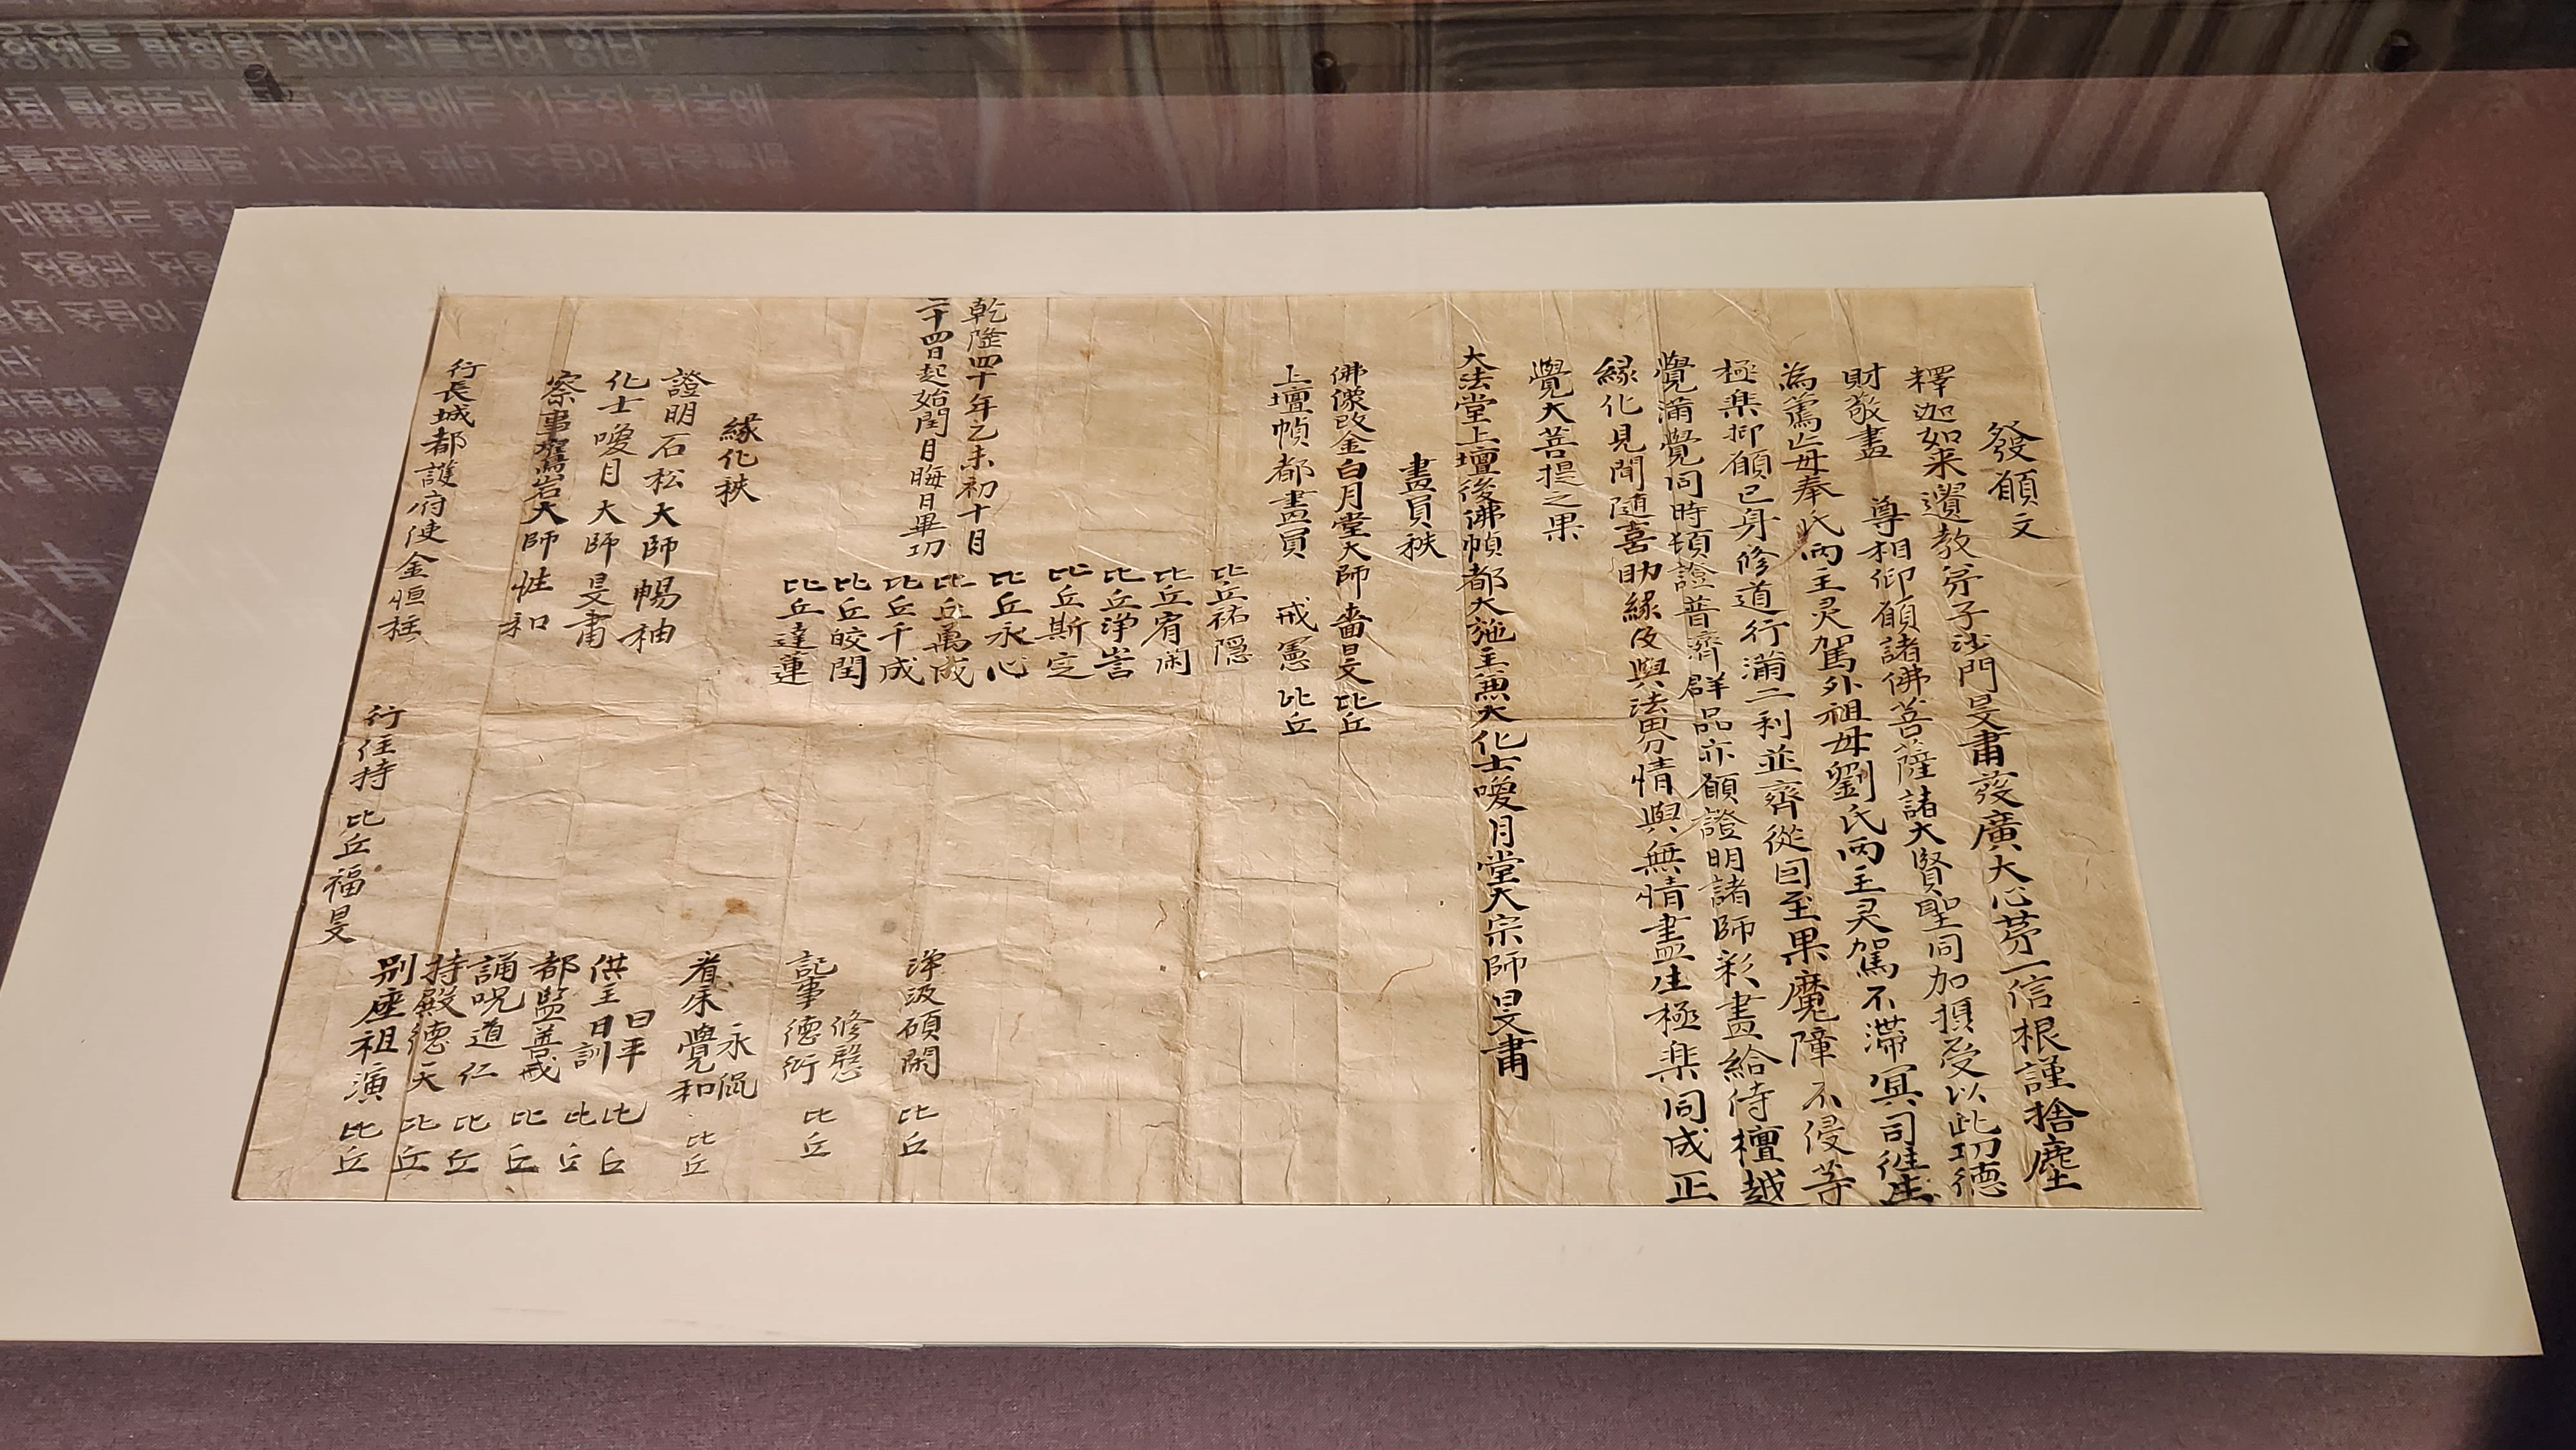 發願文
釋迦如来遺教弟子沙門旻肅發廣大心萌一信根謹捨塵
財敬畫 尊相仰願諸佛菩薩諸大賢聖同加損受以此功德
為薦亡母奉氏兩主灵駕外祖母劉氏兩主灵駕不滯冥司徃生
極楽抑願已身修道行滿二利並齊從因至果魔障不侵等
覺滿覺同時頓證普濟群品亦願證明諸師彩畫給侍檀越
緣化見聞随喜助緣及與法界有情與無情盡生極楽同成正
覺大菩提之果
大法堂上壇後佛幀都大施主兼大化士曖月堂大宗師旻肅
畫員秩
佛像改金白月堂大師畨旻比丘
上壇幀都畫員 戒憲比丘
比丘祐隠
比丘宥闲
比丘淨訔
比丘斯定
比丘永心
比丘萬成
比丘千成
比丘皎閏
比丘達蓮
乾隆四十年乙未初十月
二十四日起始閏月晦月畢功
緣化秩
證明石松大師暢䄂
化士曖月大師旻肅
察事鴬岩大師性和
行長城都護府使金恒柱
行住持 比丘福旻
淨汲碩閑 比丘
修慇
記事德衍 比丘
永侃
看床覺和 比丘
曰平 比丘
供主日訓 比丘
都監善戒 比丘
誦呪道仁 比丘
持殿德天 比丘
别座祖演 比丘